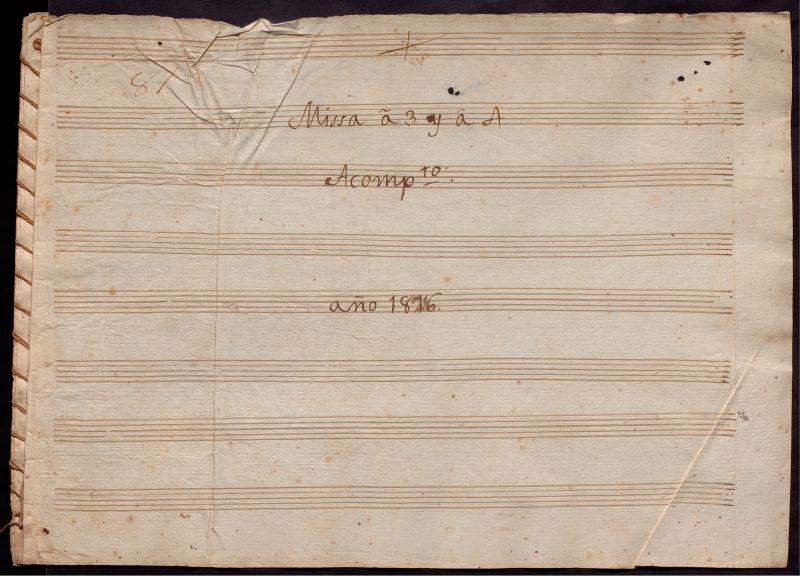 87
Missa ã 3 y ã 4
Acomp.to
año 1816.